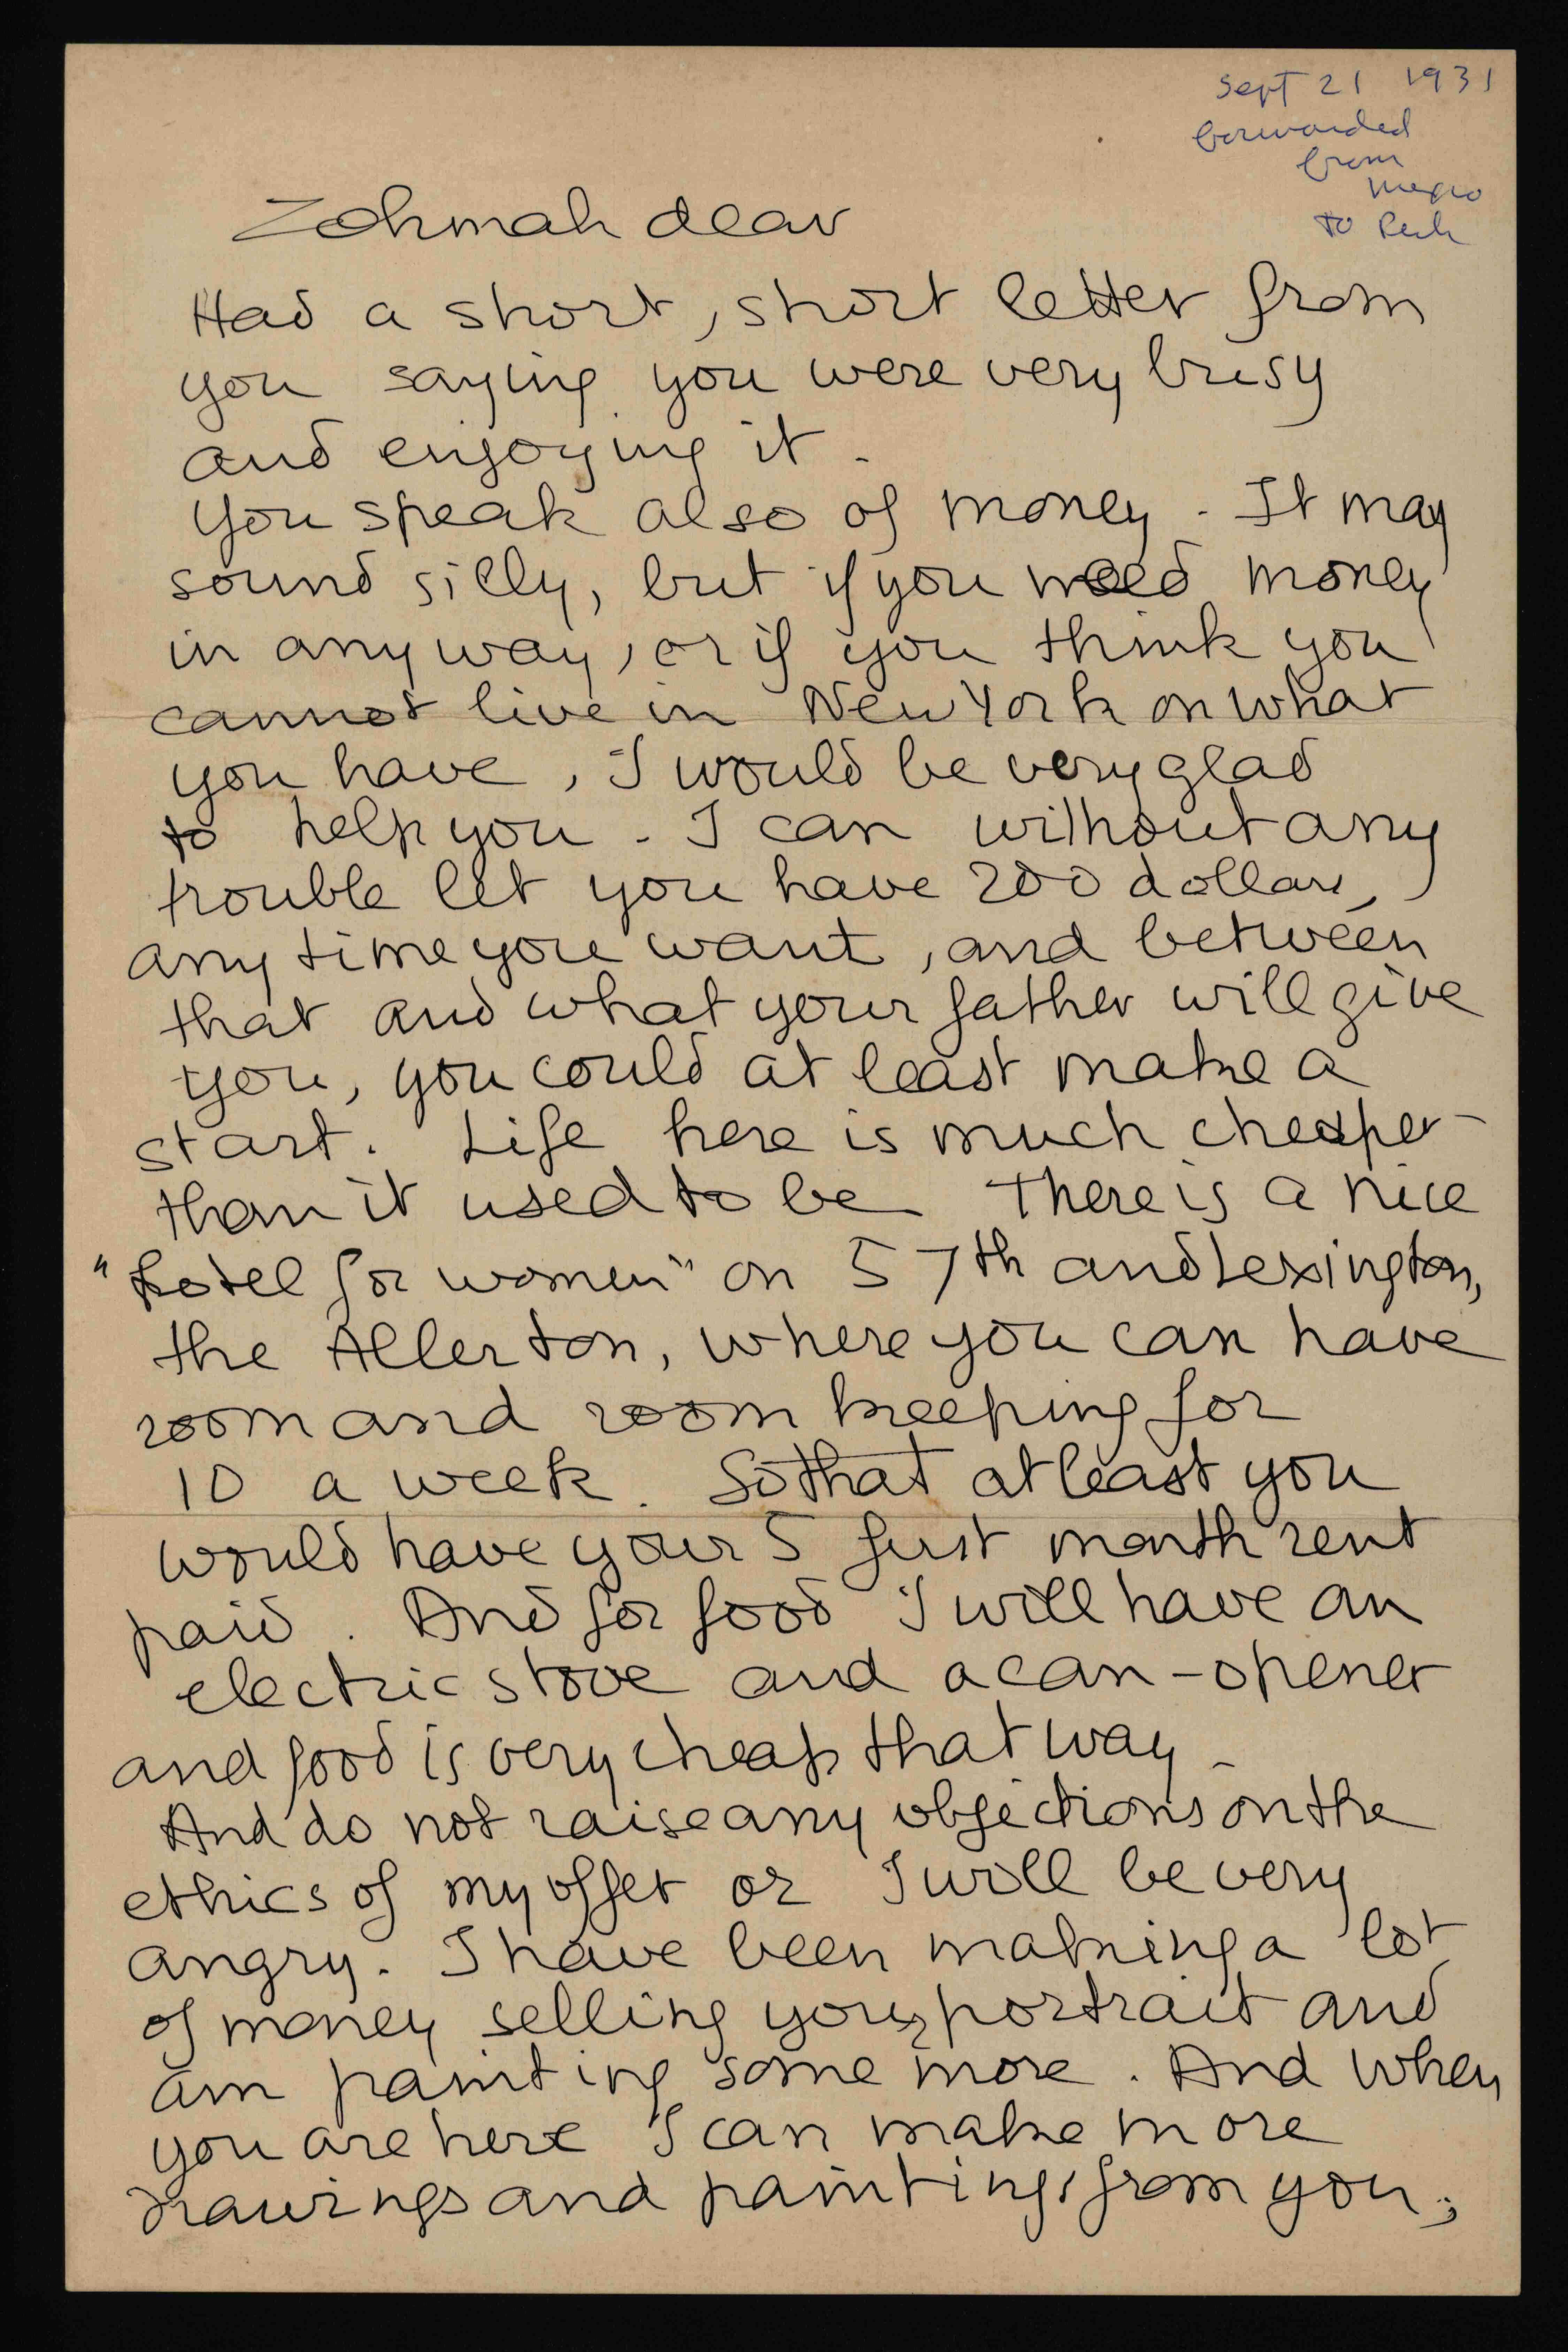 Sept 21 1931
forwarded
from
Mexico
to
Zohmah dear
Had a short, short letter from
you saying you were very busy
and enjoying it.
You speak also of money. It may
sound silly, but if you need money
in any way, or if you think you
cannot live in New York on what
you have, I would be very glad
to help you. I can without any
trouble let you have 200 dollars,
any time you want, and between
that and what your father will give
you, you could at least make a
start. Life here is much cheaper
than it used to be. There is a nice
"hotel for women" on 57th and Lexington,
the Allerton, where you can have
room and room keeping for
10 a week. So that at least you
would have your 5 first month rent
paid. And for food I will have an
electric stove and a can-opener
and food is very cheap that way.
And do not raise any objections on the
ethics of my offer or I will be very
angry. I have been making a lot
of money selling your portrait and
am painting some more. And when
you are here I can make more
drawings and paintings from you;